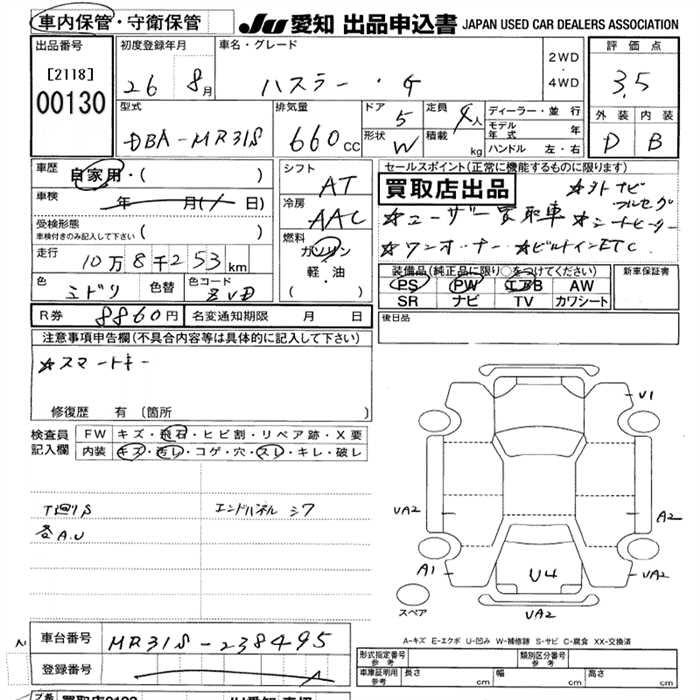 車内保管・守衛保管
JU 愛知 出品申込書 JAPAN USED CAR DEALERS ASSOCIATION
出品番号
[2118]
00130
初度登録年月
26 8月
車名・グレード
ハスラー・G
2WD
・
4WD
評価点
3.5
外装 内装
D B
型式
DBA-MR31S
排気量
660cc
ドア
5
形状
W
定員
4人
積載
kg
ディーラー・並行
モデル年式 年
ハンドル 左・右
車歴
自家用・( )
車検
年 月( 日)
受検形態
車検付きのみ記入して下さい ( )
走行
10万8千253km
色
ミドリ
色替
色コード
ZVD
シフト
AT
冷房
AAC
燃料
ガソリン
軽・油
( )
セールスポイント(正常に機能するものに限ります)
買取店出品
☆外ナビ
フルセグ
☆ユーザー買取車 ☆シートヒーター
☆ワンオーナー ☆ビルトインETC
装備品(純正品に限り○をつけてください)
PS PW エアB AW
SR ナビ TV カワシート
新車保証書
後日品
R券 8860円
名変通知期限 月 日
注意事項申告欄(不具合内容等は具体的に記入して下さい)
☆スマートキー
修復歴 有 〔箇所 〕
検査員記入欄
FW キズ・飛石・ヒビ割・リペア跡・X要
内装 キズ・汚レ・コゲ・穴・スレ・キレ・破レ
T廻りS
各A.U
エンドパネル シワ
U1
UA2
A2
A1
U4
UA2
UA2
スペア
A-キズ E-エクボ U-凹み W-補修跡 S-サビ C-腐食 XX-交換済
車台番号
MR31S-238495
登録番号
形式指定番号
参考
類別区分番号
参考
車庫証明用
参考
長さ cm
幅 cm
高さ cm